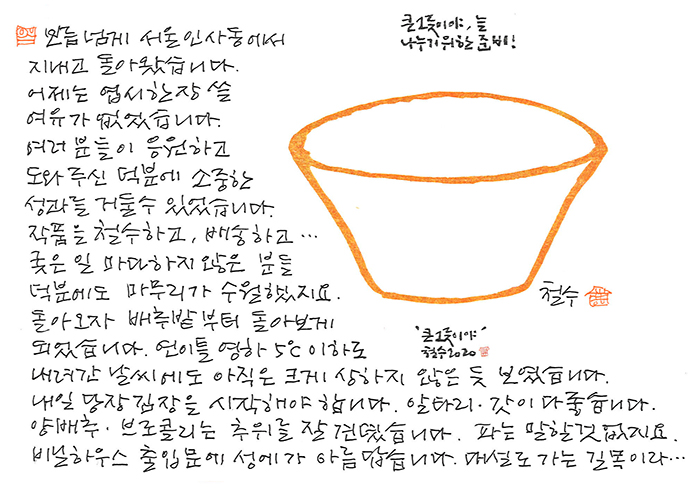 큰그릇이야, 늘
나누기위한 준비!
모듬넘게 서울인사동에서
지내고 돌아왔습니다.
어제는 엽서한장 쓸
여유가 없었습니다.
여러 분들이 응원하고
도와주신 덕분에 소중한
성과를 거둘수 있었습니다.
작품을 철수하고, 배송하고…
궂은 일 마다하지 않은 분들
덕분에도 마무리가 수월했지요.
돌아오자 배추밭부터 돌아보게
되었습니다. 연이틀 영하 5℃ 이하로
내려간 날씨에도 아직은 크게 상하지 않은 듯 보였습니다.
내일 당장 김장을 시작해야 합니다. 알타리·갓이 다 좋습니다.
양배추·브로콜리는 추위를 잘 견뎠습니다. 파는 말할것 없지요.
비닐하우스 출입문에 성에가 아름답습니다. 대설로 가는 길목이라…
철수
"큰그릇이야"
철수2020